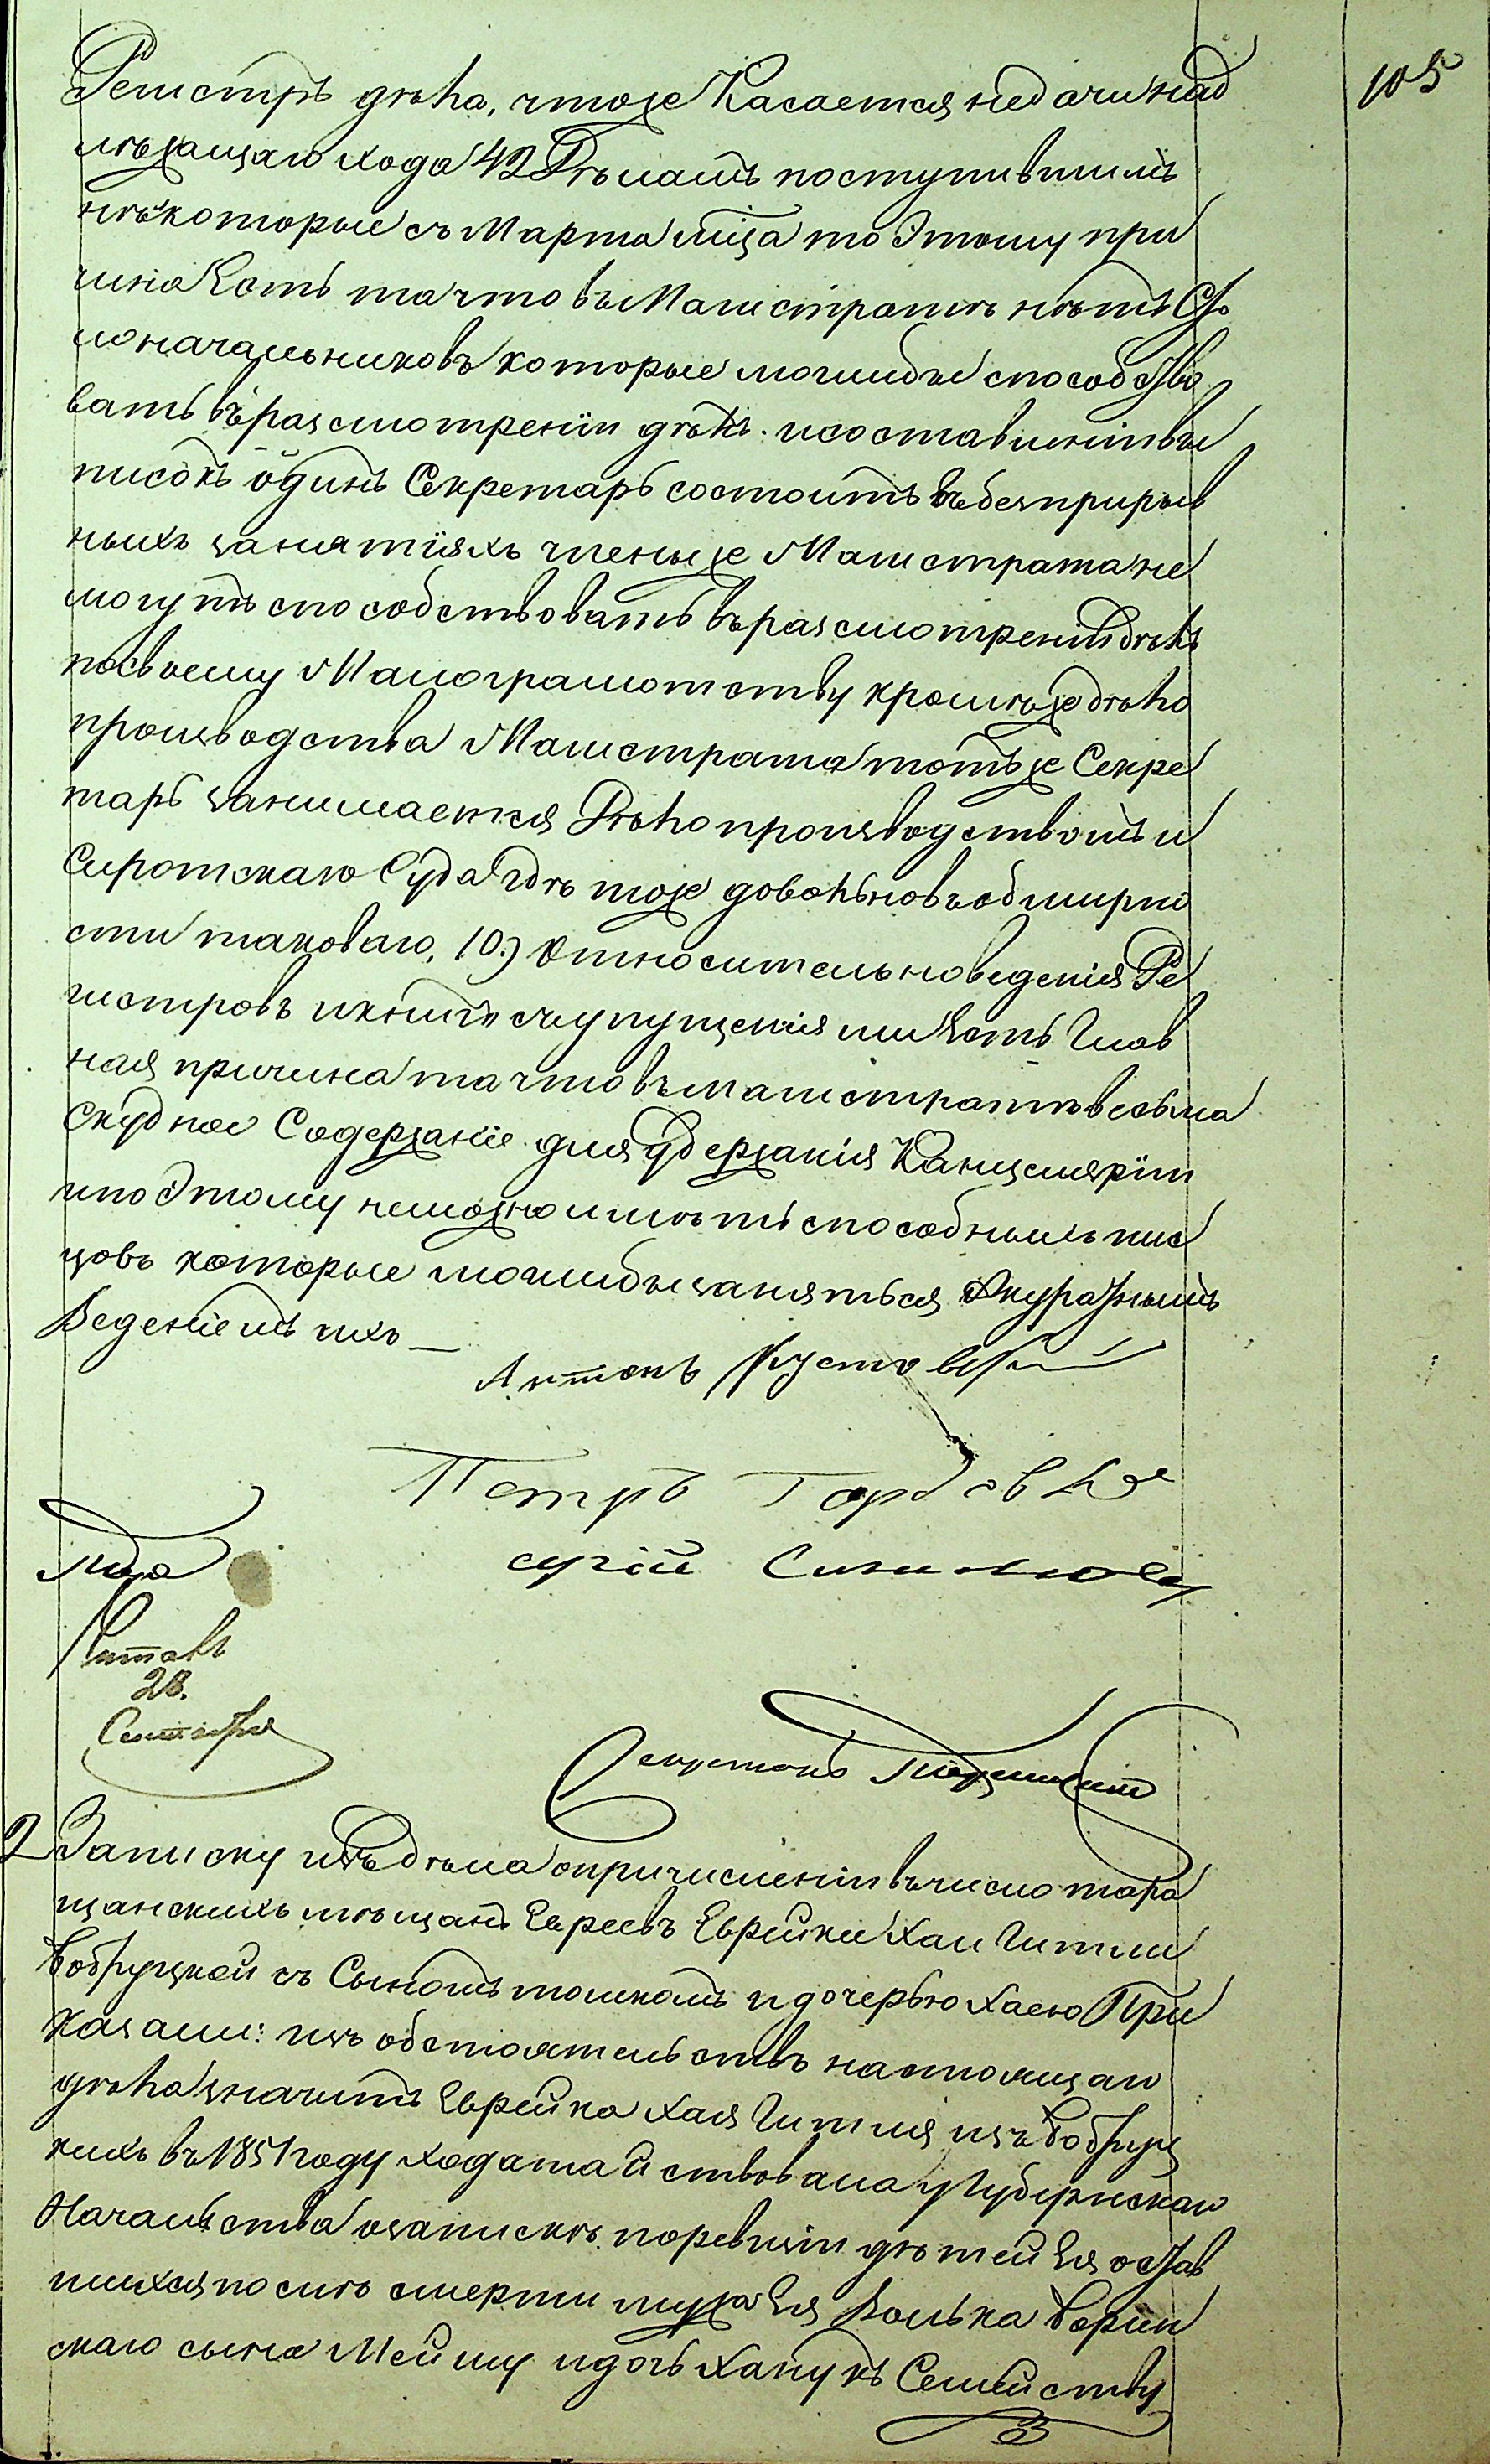 105
Регистръ дѣла, чтоже Касается недачи над
лѣжащаго хода 42 Дѣламъ поступившимъ
нѣкоторые съ Марта мѣца то Этому при
чина Есть та что въ Магистратѣ нѣтъ Сто
лоначальниковъ которые моглибы способство
вать въ разсмотреніи дѣлъ и составленіи вы
писокъ одинъ Секретарь состоитъ въ безпрырыв
ныхъ занятіяхъ члены же Магистрата не
могутъ способствовать въ разсмотреніи дѣлъ
по своему Малограмотству кромѣ же дѣло
производства Магистрата тотъ же Секре
тарь занимается Дѣлопроизводствомъ и
Сиротскаго Суда гдѣ тоже довольно въ обширно
сти таковаго, 10.) Относительно веденія Ре
гистровъ и книгъ съ упущеніями Есть Глав
ная причина та что въ магистратѣ весьма
Скудное Содержаніе для удержанія Канцеляріи
и по Этому неможно имѣть способныхъ пис
цовъ которые моглибы заняться Акуратнымъ
Веденіемъ ихъ —
Антонъ
Петръ
сргій
Читалъ
28.
Сентября
Секретарь
2 Записку изъ Дѣла о причисленіи въ число тара
щанскихъ мѣщанъ Евреевъ Еврейки Хаи Гитли
Бобруцкой съ Сыномъ тошкомъ и дочерью Хаею При
казали: изъ обстоятельствъ настоящаго
дѣла значитъ Еврейка Хая Гитля изъ Бобруц
кихъ въ 1851 году ходатайствовала у Губернскаго
Начальства о запискѣ по ревизіи дѣтей Ея остав
шихся послѣ смерти мужа Ея Волька Борин
скаго сына Мейшу и дочь Хану къ Семейству